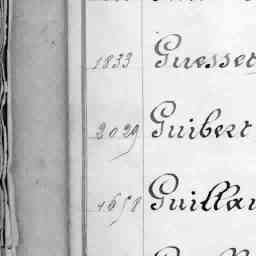 1833 Guesset
2029 Guibert
1658 Guillau